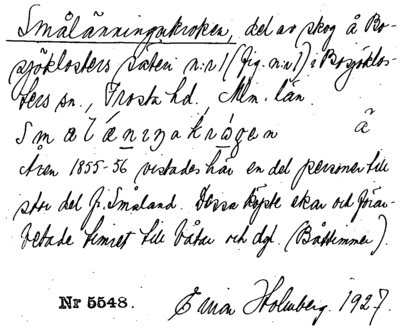 Smålänningakroken, del av skog å Bo-
sjöklosters säteri n:r 1 (fig. n:r 1) i Bosjöklos-
ters sn., Frosta hd., Mlm. län.
Smalæningakrågen
Åren 1855-56 vistades här en del personer till
stor del fr. Småland. Dessa köpte ekar och förar-
betade timret till båtar och dyl. (Båttimmer).
Nr 5548. Holmberg. 1927.